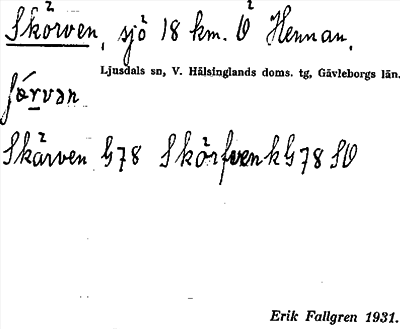 Skörven, sjö 18 km. O Hennan.
Ljusdals sn, V. Hälsinglands doms. tg, Gävleborgs län.
Skärven G78 Skörfven k G78 SO
Erik Fallgren 1931.